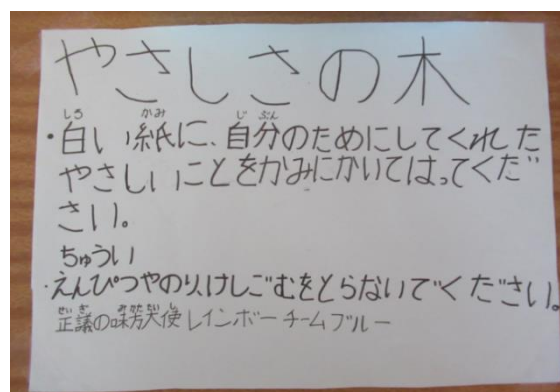 やさしさの木
・白い紙に、自分のためにしてくれた
やさしいことをかみにかいてはってくだ
さい。
ちゅうい
・えんぴつやのり、けしごむをとらないでください。
正議の味方天使レインボーチームブルー